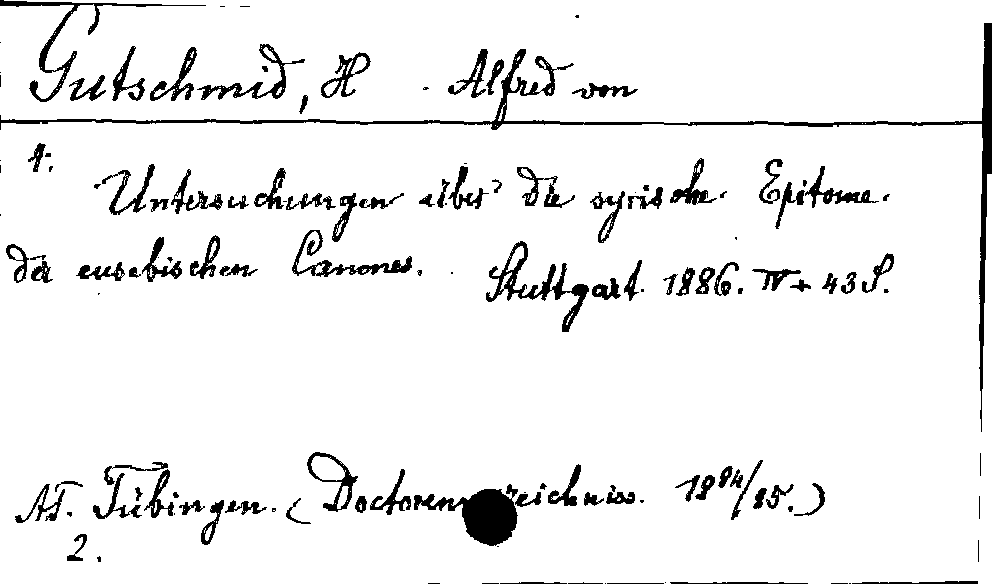 Gutschmid, H. Alfred von
1.
Untersuchungen über die syrische Epitome
der eusebischen Canones. Stuttgart 1886. IV + 43 S.
AT. Tübingen. (Doctorenverzeichniss. 1884/85.)
2.